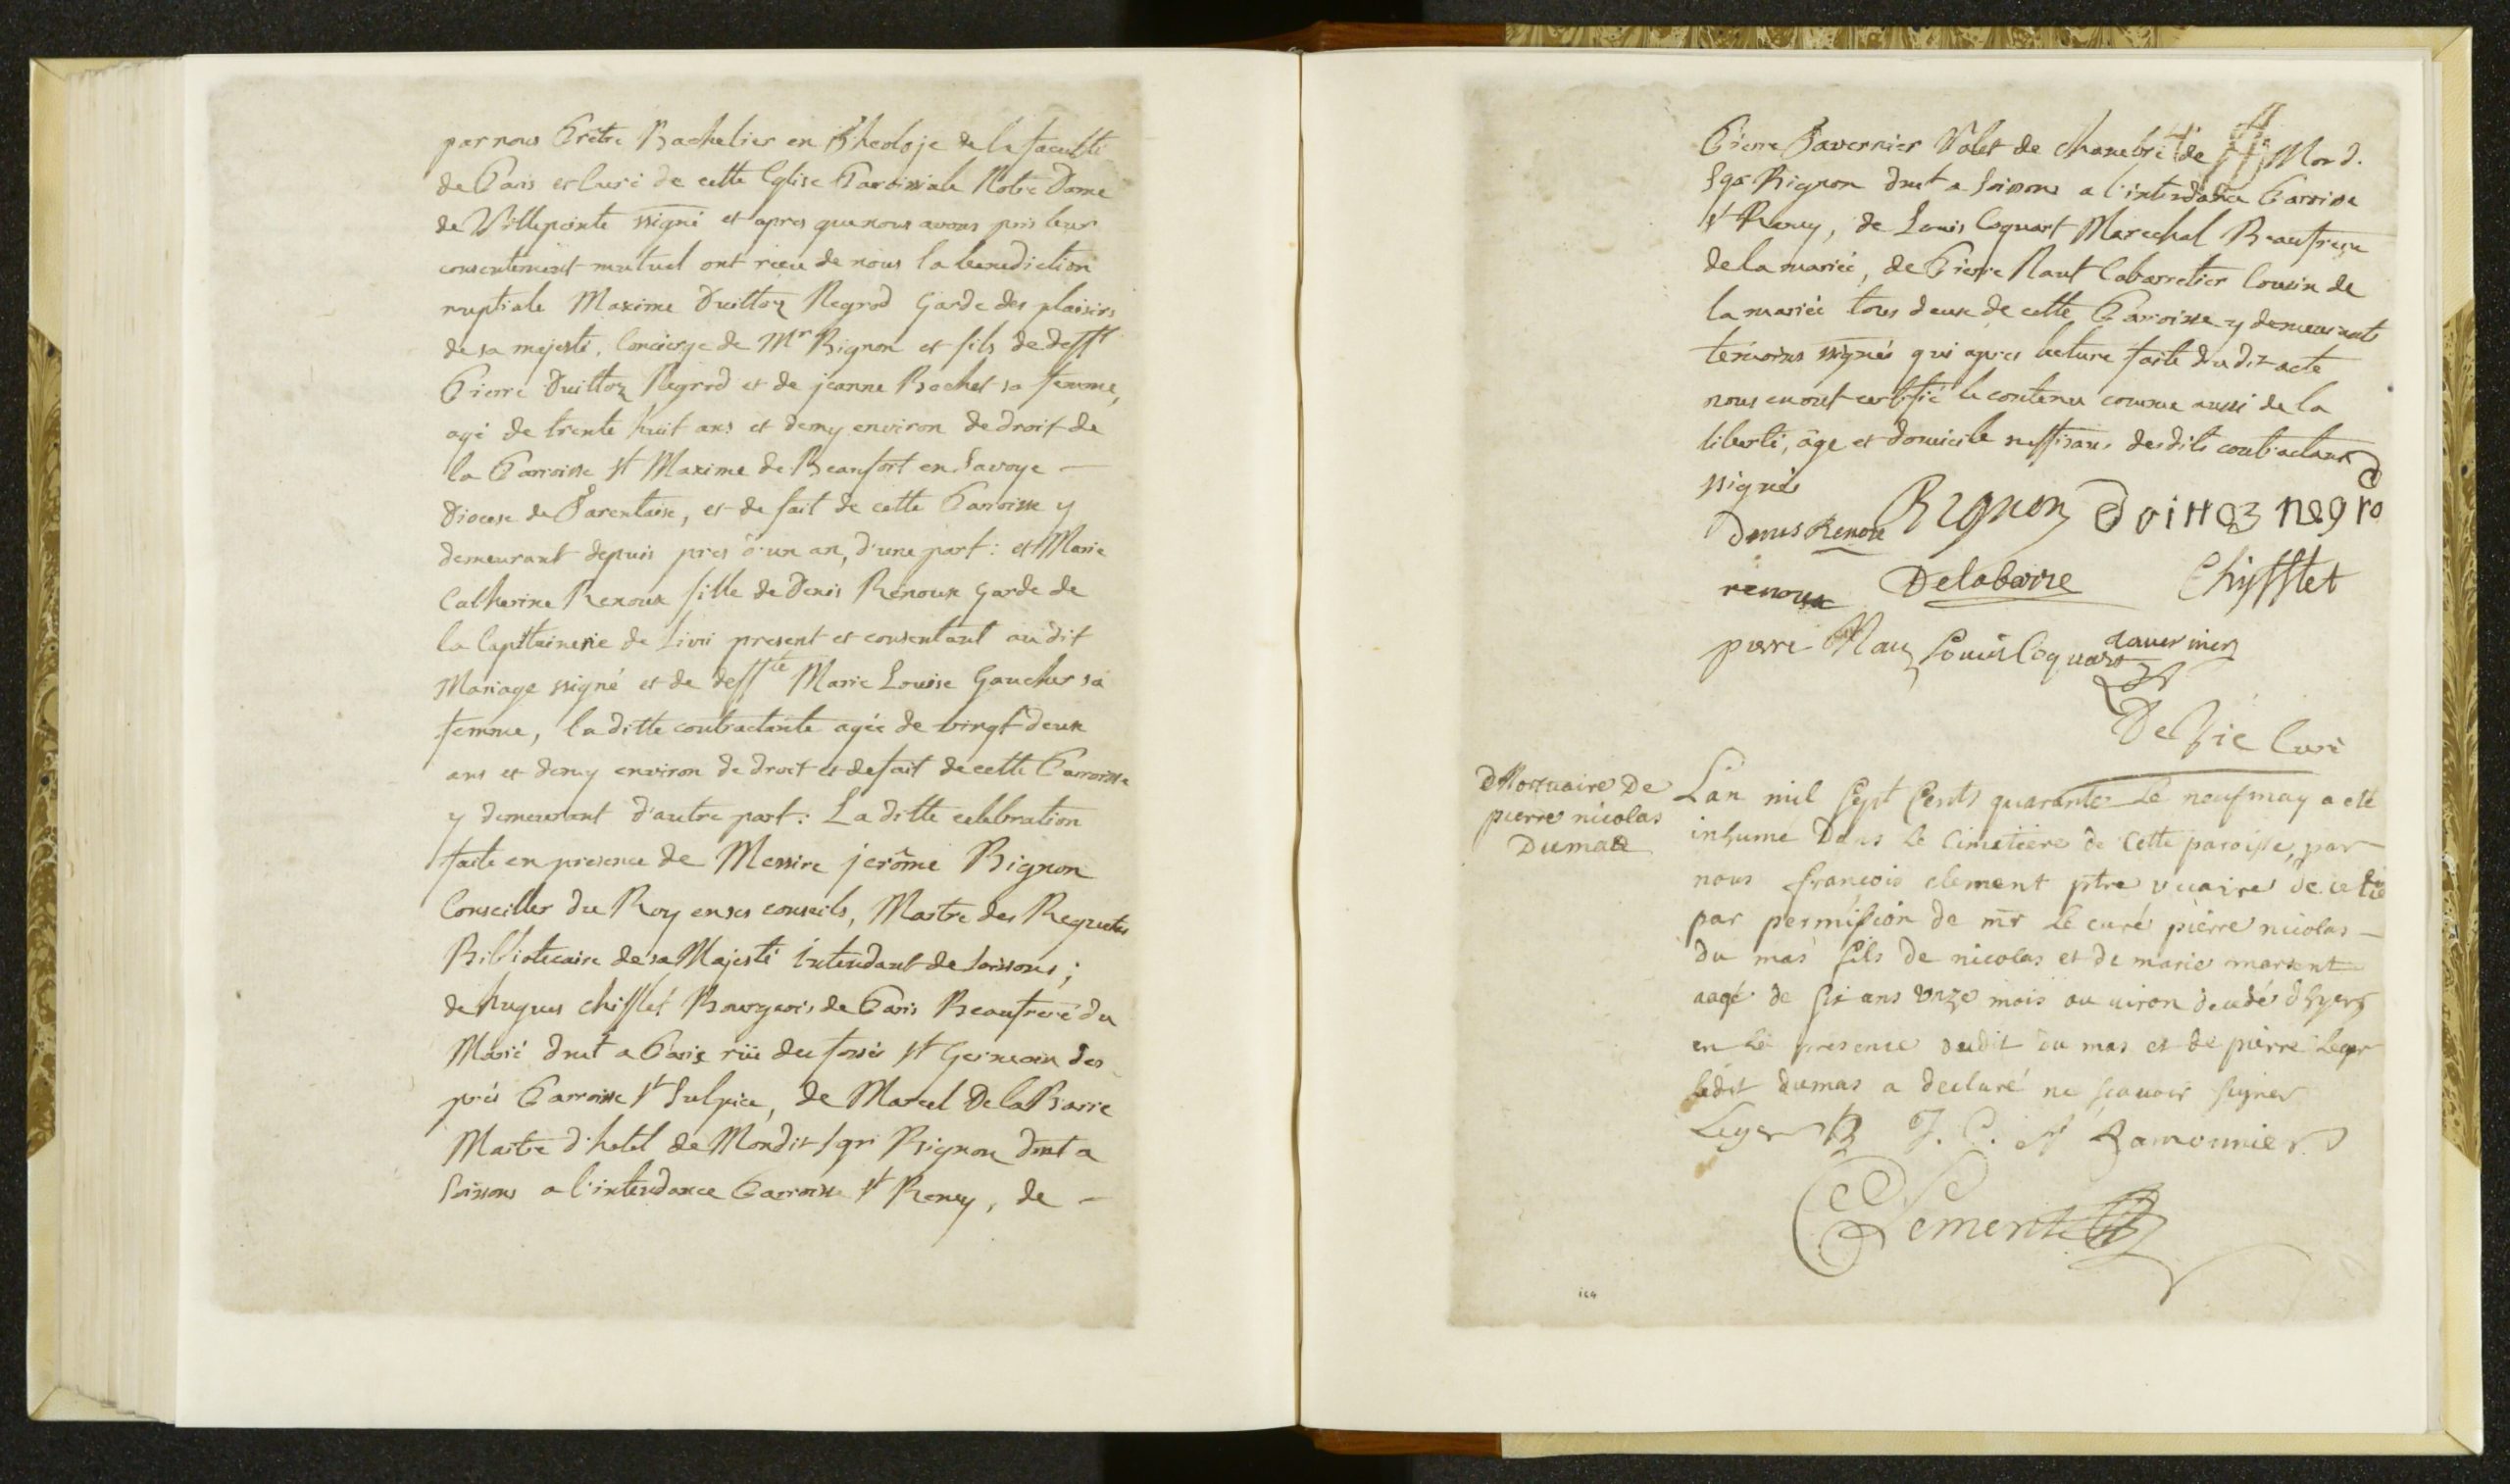 par nous Prêtre Bachelier en Theoloje de la faculté
de Paris et Curé de cette Eglise Paroissiale Notre Dame
de Villepinte ssigné et apres que nous avons pris leur
consentement mutuel ont reçu de nous la benediction
nuptiale Maxime Duittoz Negrod Garde des plaisirs
de sa majesté, Concierge de Mr Bignon et fils de defft
Pierre Duittoz Negrod et de jeanne Bochet sa femme,
agé de trente huit ans et demy environ de droit de
la Parroisse st Maxime de Beaufort en Savoye —
Diocese de Tarentaise, et de fait de cette Parroisse y
demeurant depuis pres d'un an, d'une part : et Marie
Catherine Renoux fille de Denis Renoux garde de
la Capitainerie de Livri present et consentant au dit
Mariage ssigné et de deffte Marie Louise Gaucher sa
femme, la ditte contractante agée de vingt deux
ans et demy environ de droit et de fait de cette Parroisse
y demeurant d'autre part : La ditte celebration
faite en presence de Messire jerôme Bignon
Conseiller du Roy en ses conseils, Maitre des Requetes
Bibliotecaire de sa Majesté intendant de Soissons ;
de hugues chifflet Bourgeois de Paris Beaufrere du
Marié dmt a Paris rüe des fossés st Germain des
prés Parroisse st Sulpice, de Marcel De la Barre
Maitre d'hotel de Mondit sgr Bignon dmt a
Soissons a l'intendance Parroisse st Remy, de —
Pierre Tavernier Valet de chambre de Mond.
Sgr Bignon dmt a Soissons a l'intendance Parroisse
st Remy, de Louis Coquart Marechal Beaufrere
de la mariée, de Pierre Naut Cabarretier Cousin de
la mariée tous deux de cette Parroisse y demeurants
temoins ssignés qui apres lecture faite du dit acte
nous en ont certifié le contenu comme aussi de la
liberté, âge et domicile suffisans desdits contractans
ssignés
Bignon Doittoz negro
Denis Renoux
renoux Delabarre Chifflet
pierre Nau Louis Coquart tavernier
De Vie Curé
Mortuaire De
pierre nicolas
Dumas
L'an mil sept cents quarante le neuf may a eté
inhumé Dans le Cimetiere de Cette paroisse, par
nous françois clement ptre vicaire de cette
par permission de mr le curé pierre nicolas —
du mas fils de nicolas et de marie
aagé de six ans onze mois ou viron decedé d'hyers
en la presence dudit du mas et de pierre Leger
ledit dumas a declaré ne scavoir signer
Leger J. C. Ramonnier
Clement